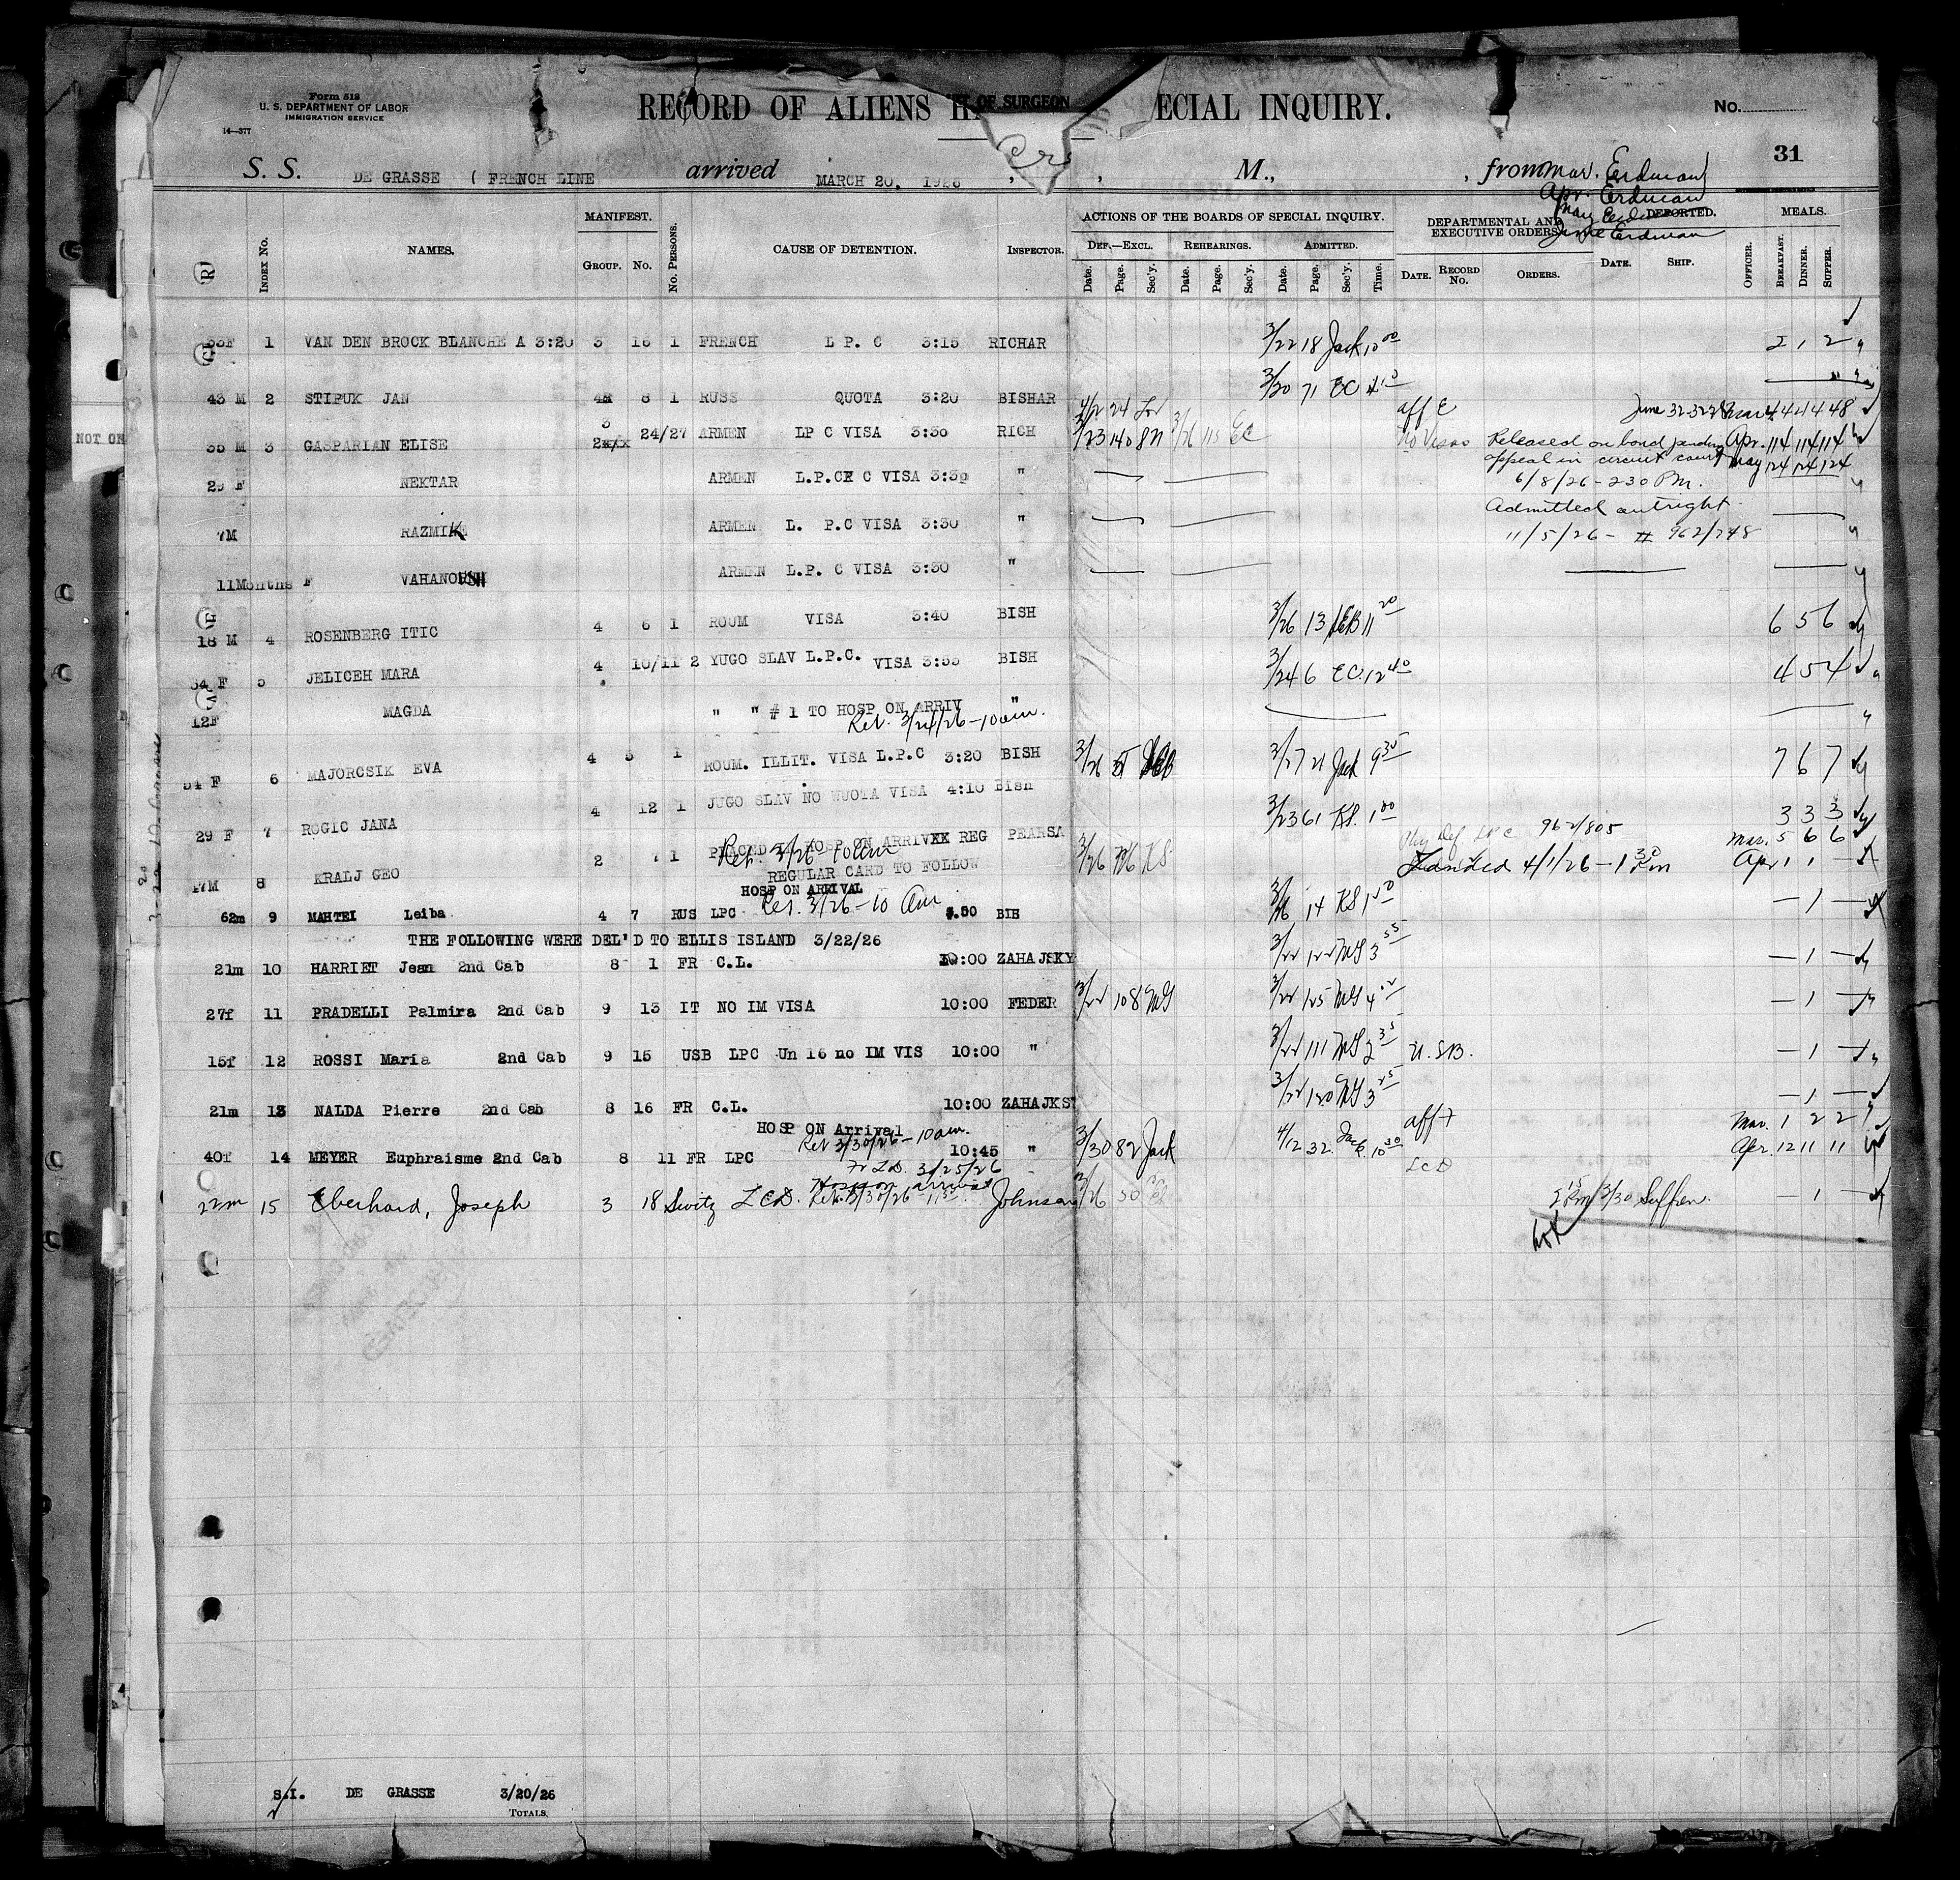 Form 518
U. S. DEPARTMENT OF LABOR
IMMIGRATION SERVICE
14—377
RECORD OF ALIENS H OF SURGEON ECIAL INQUIRY.
No.
31
S. S. DE GRASSE ( FRENCH LINE arrived MARCH 20, 1926 , , M., , from Mar. Erdman
Apr. Erdman
May Erdman
June Erdman
Index No. NAMES. MANIFEST. GROUP. NO. No. Persons. CAUSE OF DETENTION. INSPECTOR.
ACTIONS OF THE BOARDS OF SPECIAL INQUIRY. DEF.—EXCL. REHEARINGS. ADMITTED.
Date. Page. Sec'y. Date. Page. Sec'y. Date. Page. Sec'y. Time.
DEPARTMENTAL AND EXECUTIVE ORDERS. DATE. RECORD NO. ORDERS.
DEPORTED. DATE. SHIP. OFFICER. MEALS. BREAKFAST. DINNER. SUPPER.
33F 1 VAN DEN BROCK BLANCHE A 3:20 3 16 1 FRENCH L P. C 3:15 RICHAR 3/22 18 Jack 10 00 2 1 2
43 M 2 STIPUK JAN 8 1 RUSS QUOTA 3:20 BISHAR 3/20 71 EC
35 M 3 GASPARIAN ELISE 3 24/27 ARMEN LP C VISA 3:30 RICH 3/23 140 3/26 115 EC No Visas
Released on bond pending
appeal in circuit court
6/8/26 - 230 Pm.
Admitted outright
11/5/26 - # 962/748
Apr. 114 114 114
May 124 124 124
29 F NEKTAR ARMEN L.P.C C VISA 3:30 "
7M RAZMIK ARMEN L. P.C VISA 3:30 "
11Months F VAHANOUSH ARMEN L.P. C VISA 3:30 "
18 M 4 ROSENBERG ITIC 4 6 1 ROUM VISA 3:40 BISH 3/26 13 11 20 6 5 6
34 F 5 JELICEH MARA 4 10/11 2 YUGO SLAV L.P.C. VISA 3:55 BISH 3/24 6 EC 12 40 4 5 4
12F MAGDA " " # 1 TO HOSP ON ARRIV "
Ret. 3/24/26 - 10 am.
34 F 6 MAJORCSIK EVA 4 5 1 ROUM. ILLIT. VISA L.P.C 3:20 BISH 3/26 3/27 21 Jack 9 35 7 6 7
29 F 7 ROGIC JANA 4 12 1 JUGO SLAV NO WUOTA VISA 4:10 Bish 3/23 61 KS. 1 00 3 3 3
PLACED IN HOSP ON ARRIVXX REG PEARSA
Ret. 3/26 - 10 am
17M 8 KRALJ GEO 2 7 1 REGULAR CARD TO FOLLOW 3/26 KS 962/805
Landed 4/1/26 - 1 30 Pm
Mar. 5 6 6
Apr 1 1 -
HOSP ON ARRIVAL
Ret. 3/26 - 10 Am
62m 9 MAHTEI Leiba 4 7 RUS LPC 4.50 BIH 14 KS - 1 -
THE FOLLOWING WERE DEL'D TO ELLIS ISLAND 3/22/26
21m 10 HARRIET Jean 2nd Cab 8 1 FR C.L. 10:00 ZAHAJSKY 3/22 122 MG 3 55 - 1 -
27f 11 PRADELLI Palmira 2nd Cab 9 13 IT NO IM VISA 10:00 FEDER 3/22 108 MG 3/22 125 MG - 1 -
15f 12 ROSSI Maria 2nd Cab 9 15 USB LPC Un 16 no IM VIS 10:00 " 3/22 111 MG 2 35 U. S.B. - 1 -
21m 13 NALDA Pierre 2nd Cab 8 16 FR C.L. 10:00 ZAHAJKS 3/22 120 MG 3 25 - 1 -
HOSP ON Arrival
Ret 3/30/26 - 10 am.
40f 14 MEYER Euphraisme 2nd Cab 8 11 FR LPC 10:45 " 3/30 82 Jack 4/12 32 Jack 10 30
Mar. 1 2 2
Apr. 12 11 11
LCD
3/25/26
Hosp on arrival
22m 15 Eberhard, Joseph 3 18 Switz LCD. Ret. 3/30/26 Johnson 3/26 50 3/30 Suffren. - 1 -
S.I. DE GRASSE 3/20/26
TOTALS.
NOT ON